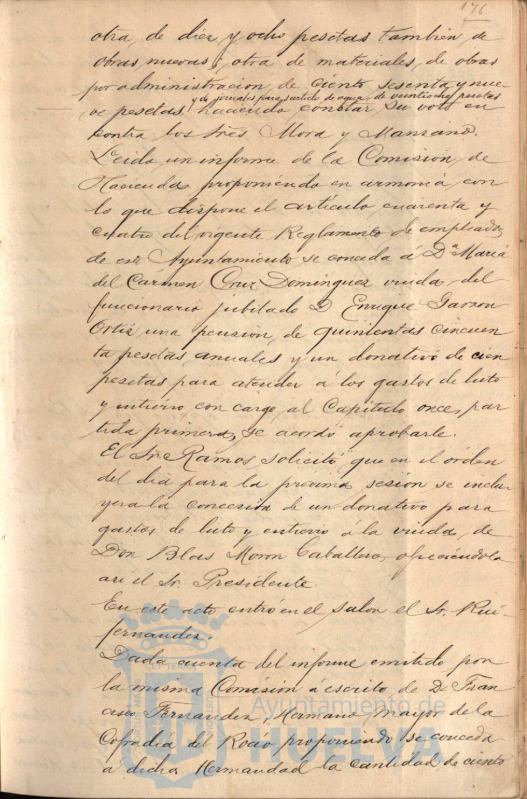 176
otra, de diez y ocho pesetas tambien, de
obras nuevas; otra de materiales, de obras
por administracion, de ciento sesenta y nue-
y de jornales para surtido de agua, de veintiocho pesetas
ve pesetas, haciendo constar su voto en
contra los Sres Mora y Manzano.
Leido un informe de la Comisión de
Hacienda, proponiendo en armonia con
lo que dispone el artículo cuarenta y
cuatro del vigente Reglamento de empleados
de este Ayuntamiento se conceda á Dª Maria
del Cármen Cruz Dominguez viuda del
funcionario jubilado D. Enrique Garzon
Ortiz una pensión, de quinientas cincuen
ta pesetas anuales y un donativo de cien
pesetas para atender á los gastos de luto
y entierro con cargo al Capítulo once, par
tida primera, se acordó aprobarle.
El Sr. Ramos solicitó que en el órden
del dia para la proxima sesión se inclu
yera la concesión de un donativo para
gastos de luto y entierro á la viuda, de
Don Blas Moron Caballero, ofreciéndolo
asi el Sr. Presidente
En este acto entró en el salon el Sr. Rui-
fernandez.
Dada cuenta del informe emitido por
la misma Comisión á escrito, de D. Fran
cisco Fernandez, Hermano mayor de la
Cofradia del Rocio proponiendo se conceda
á dicha Hermandad la cantidad de ciento
Ayuntamiento de
HUELVA